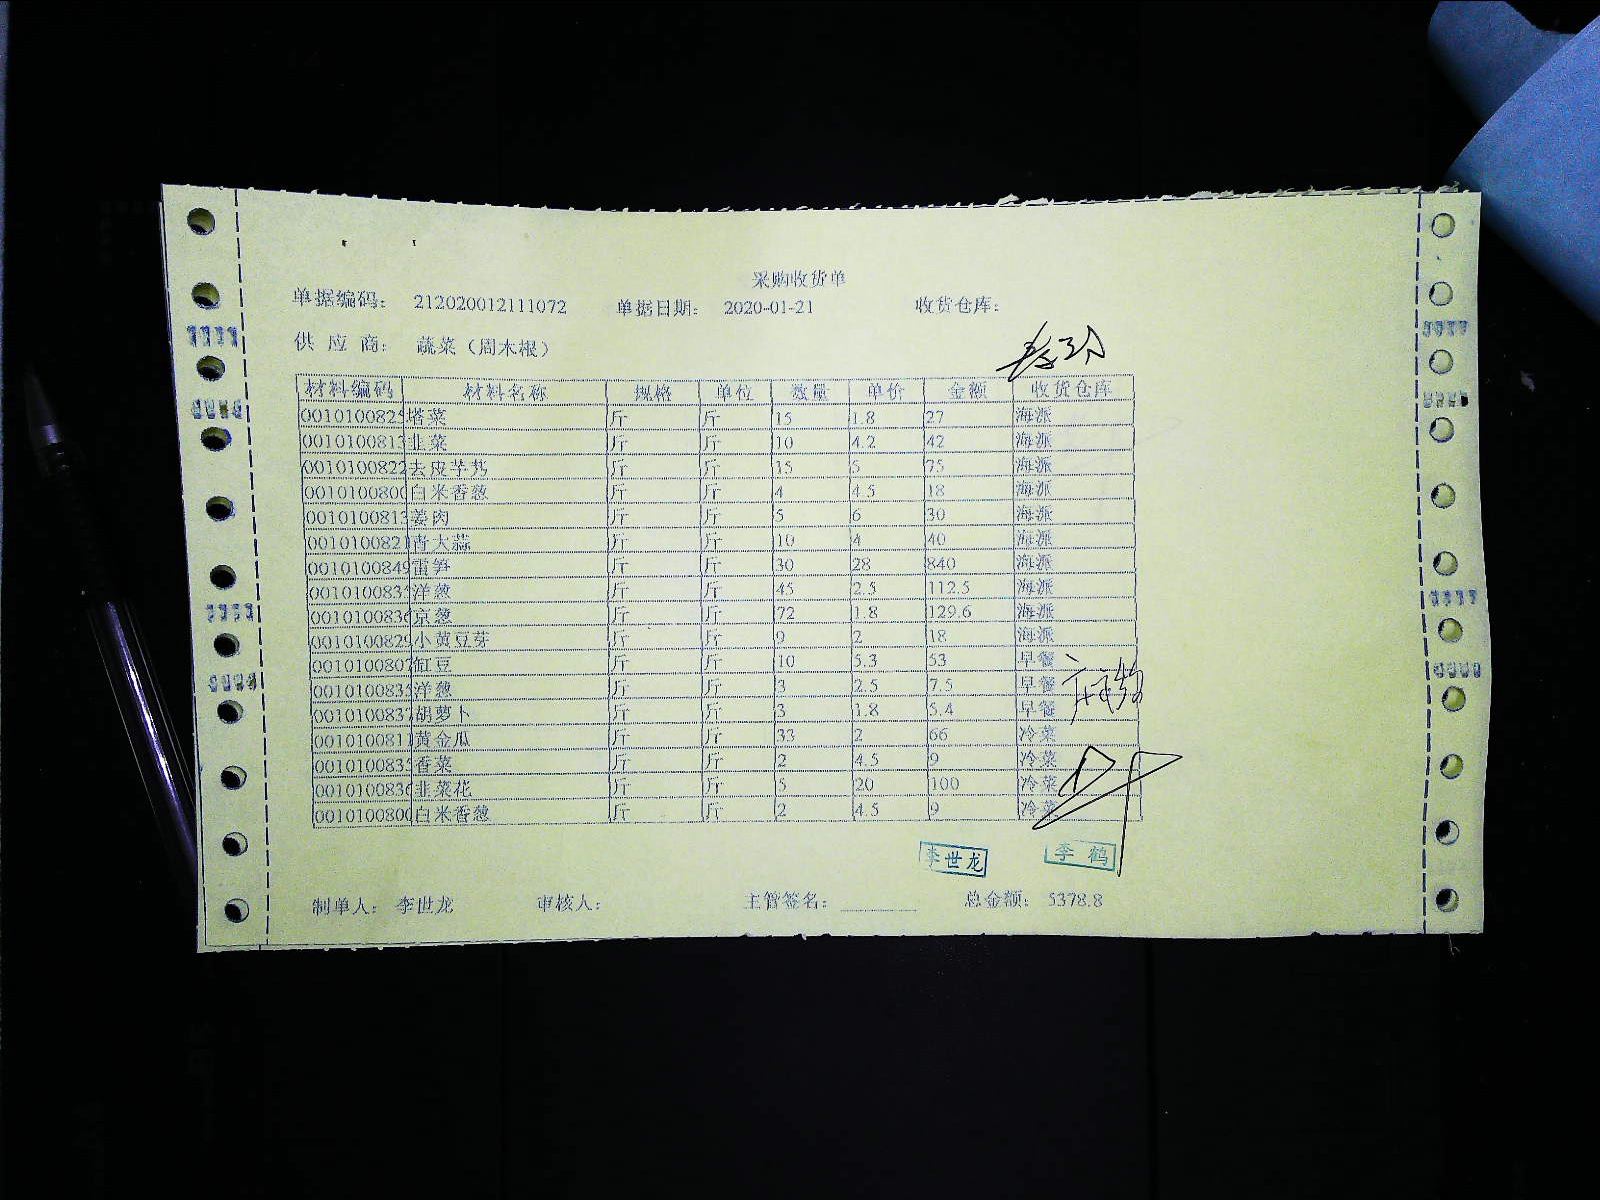 采购收货单
单据编码： 212020012111072 单据日期： 2020-01-21 收货仓库：
供 应 商： 蔬菜（周木根）
材料编码 材料名称 规格 单位 数量 单价 金额 收货仓库
0010100825 塔菜 斤 斤 15 1.8 27 海派
0010100813 韭菜 斤 斤 10 4.2 42 海派
0010100822 去皮芋艿 斤 斤 15 5 75 海派
001010080 白米香葱 斤 斤 4 4.5 18 海派
0010100813 姜肉 斤 斤 5 6 30 海派
0010100821 青大蒜 斤 斤 10 4 40 海派
0010100849 雷笋 斤 斤 30 28 840 海派
001010083 洋葱 斤 斤 45 2.5 112.5 海派
0010100836 京葱 斤 斤 72 1.8 129.6 海派
0010100829 小黄豆芽 斤 斤 9 2 18 海派
0010100807 缸豆 斤 斤 10 5.3 53 早餐
001010083 洋葱 斤 斤 3 2.5 7.5 早餐
0010100837 胡萝卜 斤 斤 3 1.8 5.4 早餐
0010100811 黄金瓜 斤 斤 33 2 66 冷菜
0010100835 香菜 斤 斤 2 4.5 9 冷菜
0010100836 韭菜花 斤 斤 5 20 100 冷菜
001010080 白米香葱 斤 斤 2 4.5 9 冷菜
李世龙 李鹤
制单人： 李世龙 审核人： 主管签名： 总金额： 5378.8